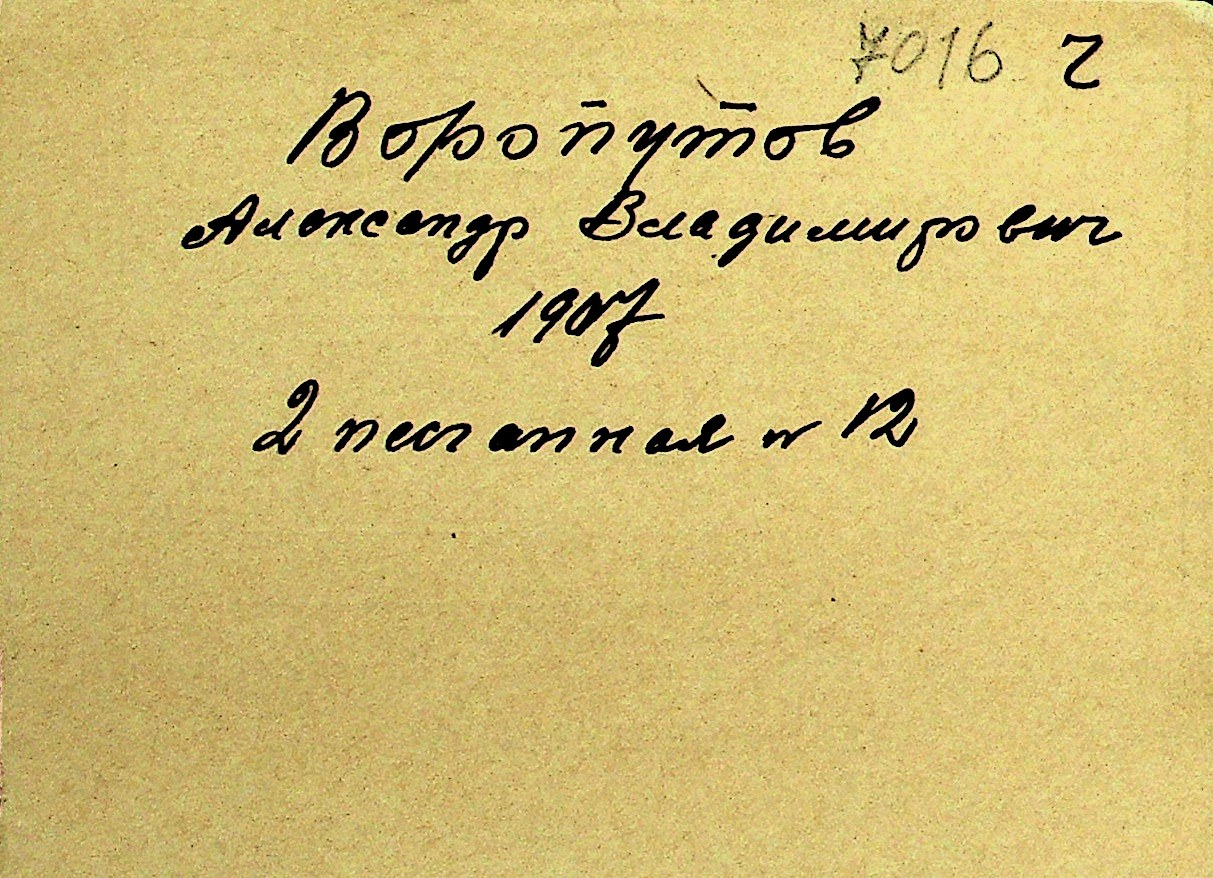 7016 ч
Воропутов
Александр Владимирович
1907
2 песчанная № 12